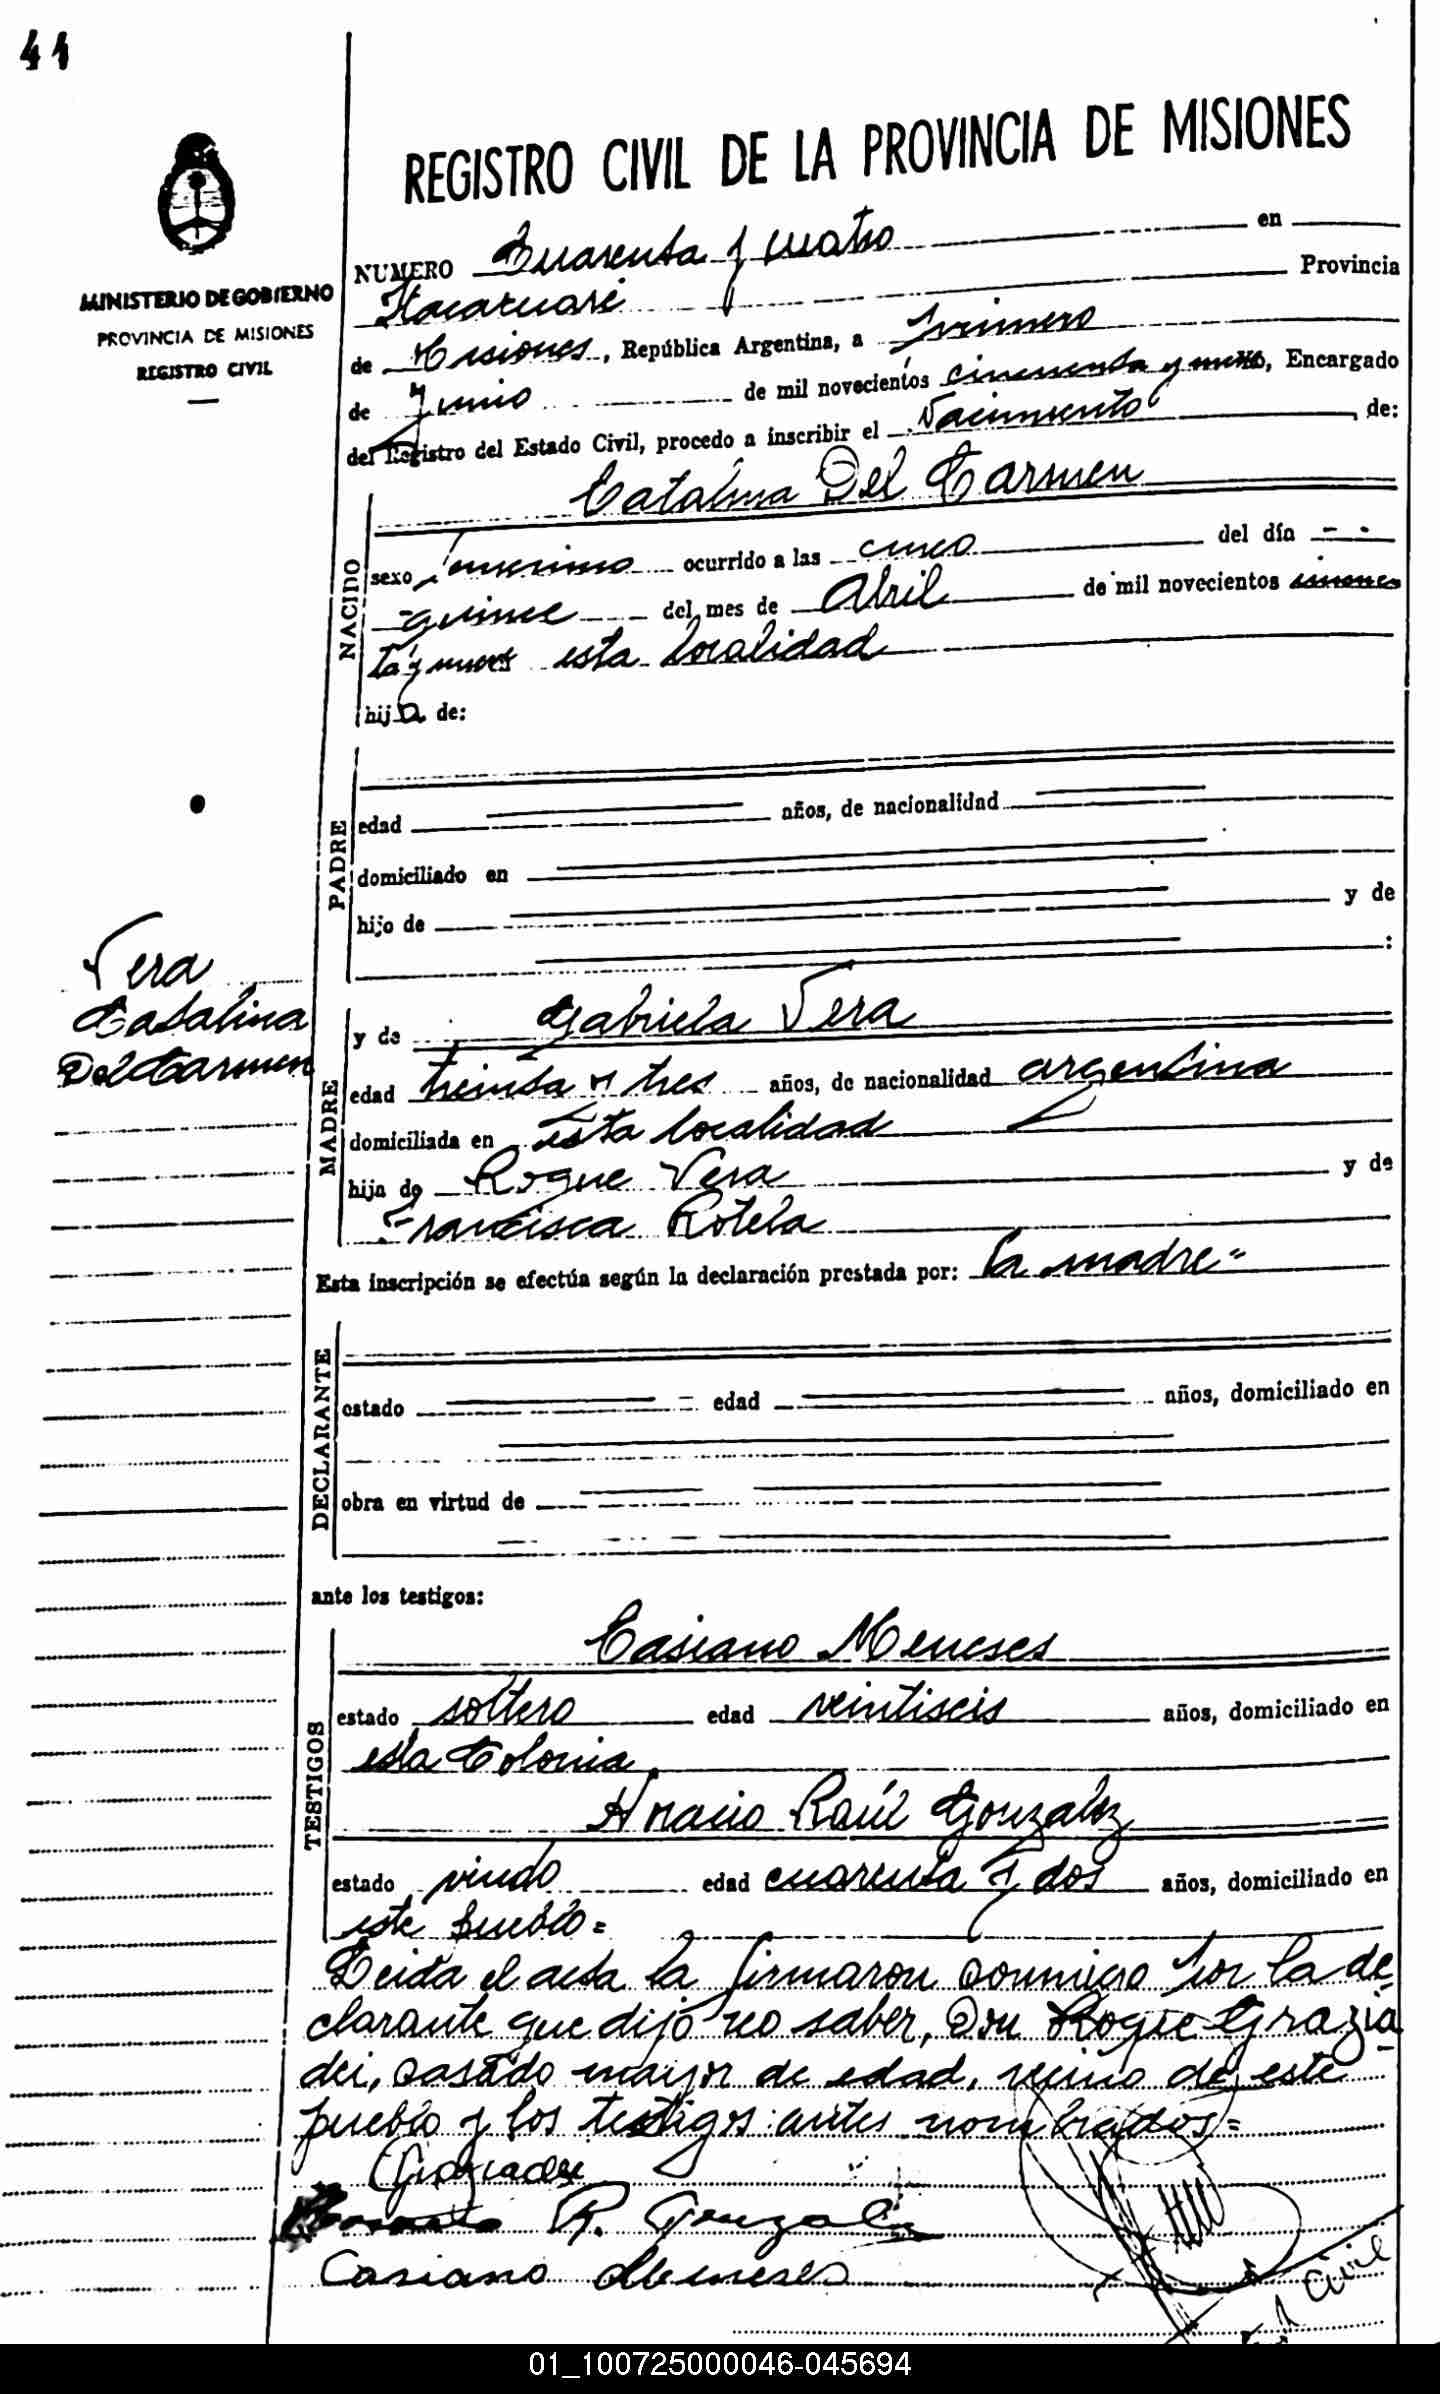 41
REGISTRO CIVIL DE LA PROVINCIA DE MISIONES
MINISTERIO DE GOBIERNO
PROVINCIA DE MISIONES
REGISTRO CIVIL
NUMERO Cuarenta y cuatro en
Itacaruaré Provincia
de Misiones, República Argentina, a primero
de Junio de mil novecientos cincuenta y nueve, Encargado
del Registro del Estado Civil, procedo a inscribir el Nacimiento de:
NACIDO
Catalina Del Carmen
sexo femenino ocurrido a las cinco del día
quince del mes de Abril de mil novecientos cincuen
ta y nueve esta localidad
hija de:
PADRE
edad años, de nacionalidad
domiciliado en
hijo de y de
:
Vera
Catalina
Del Carmen
MADRE
y de Gabriela Vera
edad treinta y tres años, de nacionalidad argentina
domiciliada en esta localidad
hija de Roque Vera y de
Francisca Rotela
Esta inscripción se efectúa según la declaración prestada por: la madre=
DECLARANTE
estado edad años, domiciliado en
obra en virtud de
ante los testigos:
TESTIGOS
Casiano Meneses
estado soltero edad veintiseis años, domiciliado en
esta Colonia
Horacio Raúl Gonzalez
estado viudo edad cuarenta y dos años, domiciliado en
este pueblo=
Leida el acta la firmaron conmigo por la de
clarante que dijo no saber, Don Roque Grazia
dei, casado mayor de edad, vecino de este
pueblo y los testigos antes nombrados=
R. Gonzalez
Casiano Meneses
Civil
01_100725000046-045694